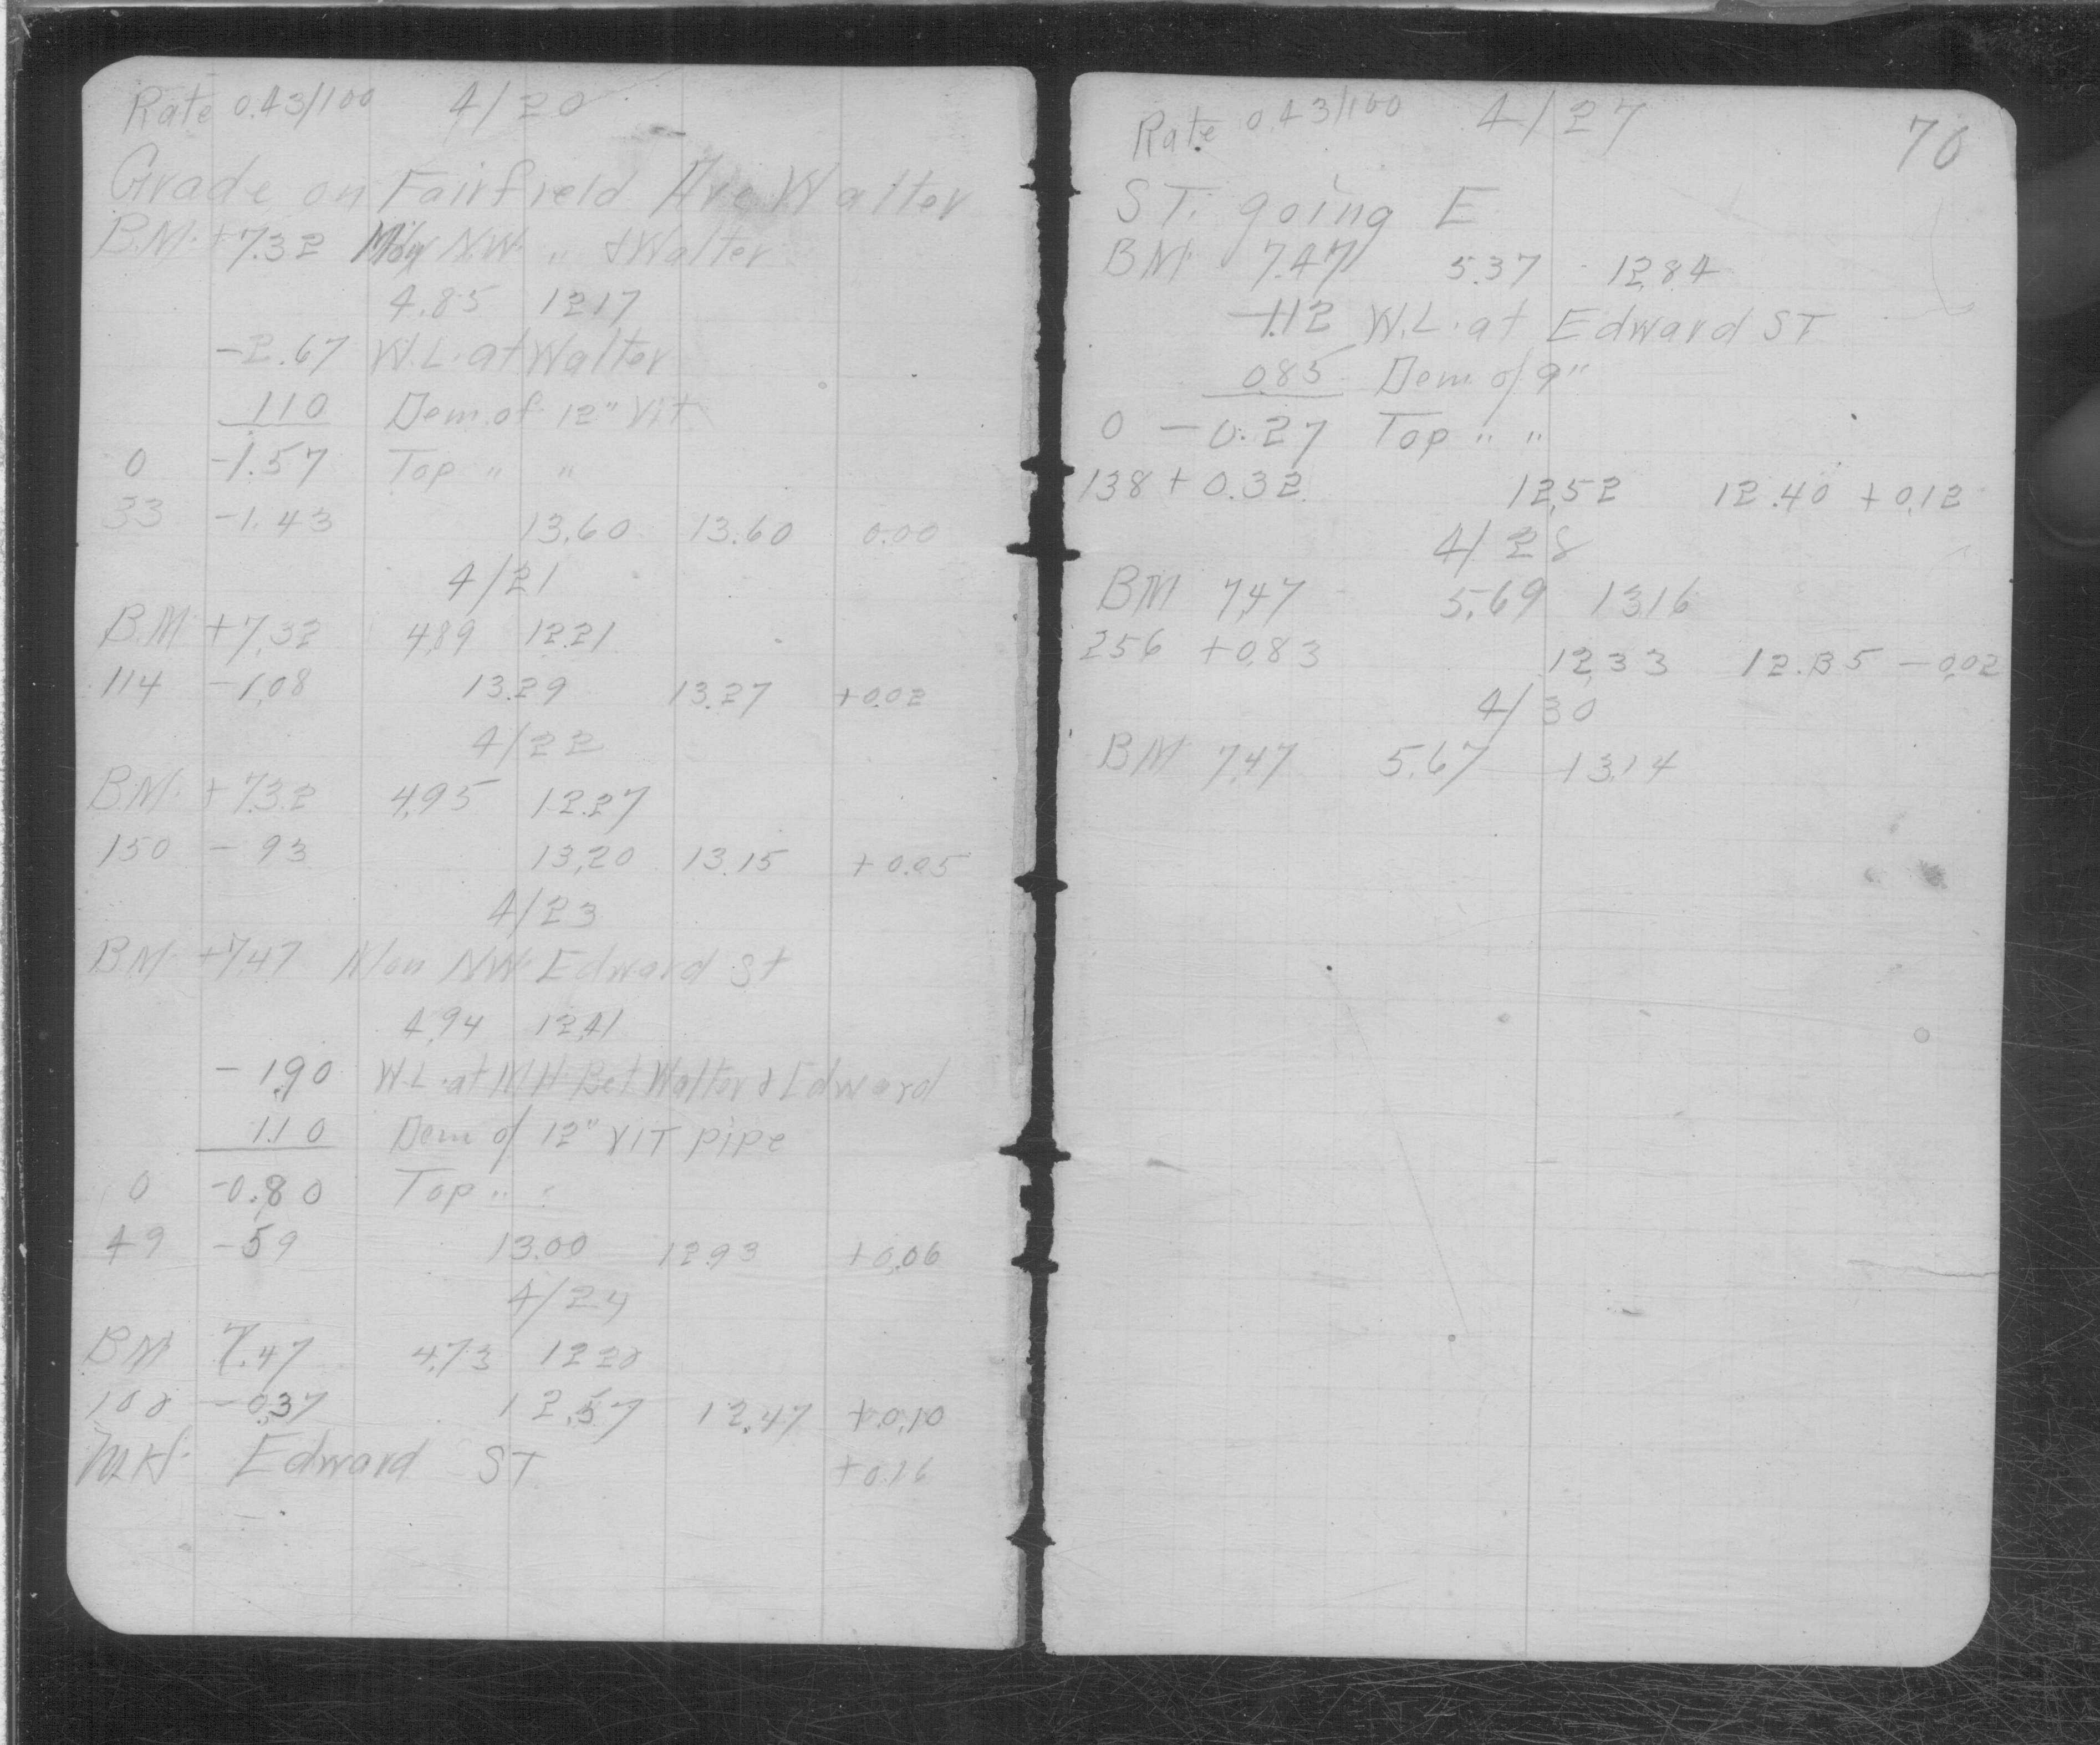 Rate 0.43/100 4/20
Grade on Fairfield Ave Walter
B.M. +7.32 Mon N.W. " & Walter
4.85 12.17
-2.67 W.L. at Walter
1.10 Dem. of 12" Vit.
0 -1.57 Top " "
33 -1.43 13.60 13.60 0.00
4/21
B.M. +7.32 4.89 12.21
114 -1.08 13.29 13.27 +0.02
4/22
B.M. +7.32 4.95 12.27
150 - 93 13.20 13.15 +0.05
4/23
B.M. +7.47 Mon N.W. Edward St
4.94 12.41
- 1.90 W.L. at M.H. Bet Walter & Edward
1.10 Dem of 12" VIT pipe
0 -0.80 Top " "
49 -59 13.00 12.93 +0.06
4/24
BM 7.47 4.73 12.20
100 -0.37 12.57 12.47 +0.10
M.H. Edward ST +0.16
Rate 0.43/100 4/27 70
ST. going E
BM. 7.47 5.37 12.84
-1.12 W.L. at Edward ST
0.85 Dem. of 9"
0 -0.27 Top " "
138 +0.32 12.52 12.40 +0.12
4/28
BM 7.47 5.69 13.16
256 +0.83 12.33 12.35 -0.02
4/30
BM 7.47 5.67 13.14